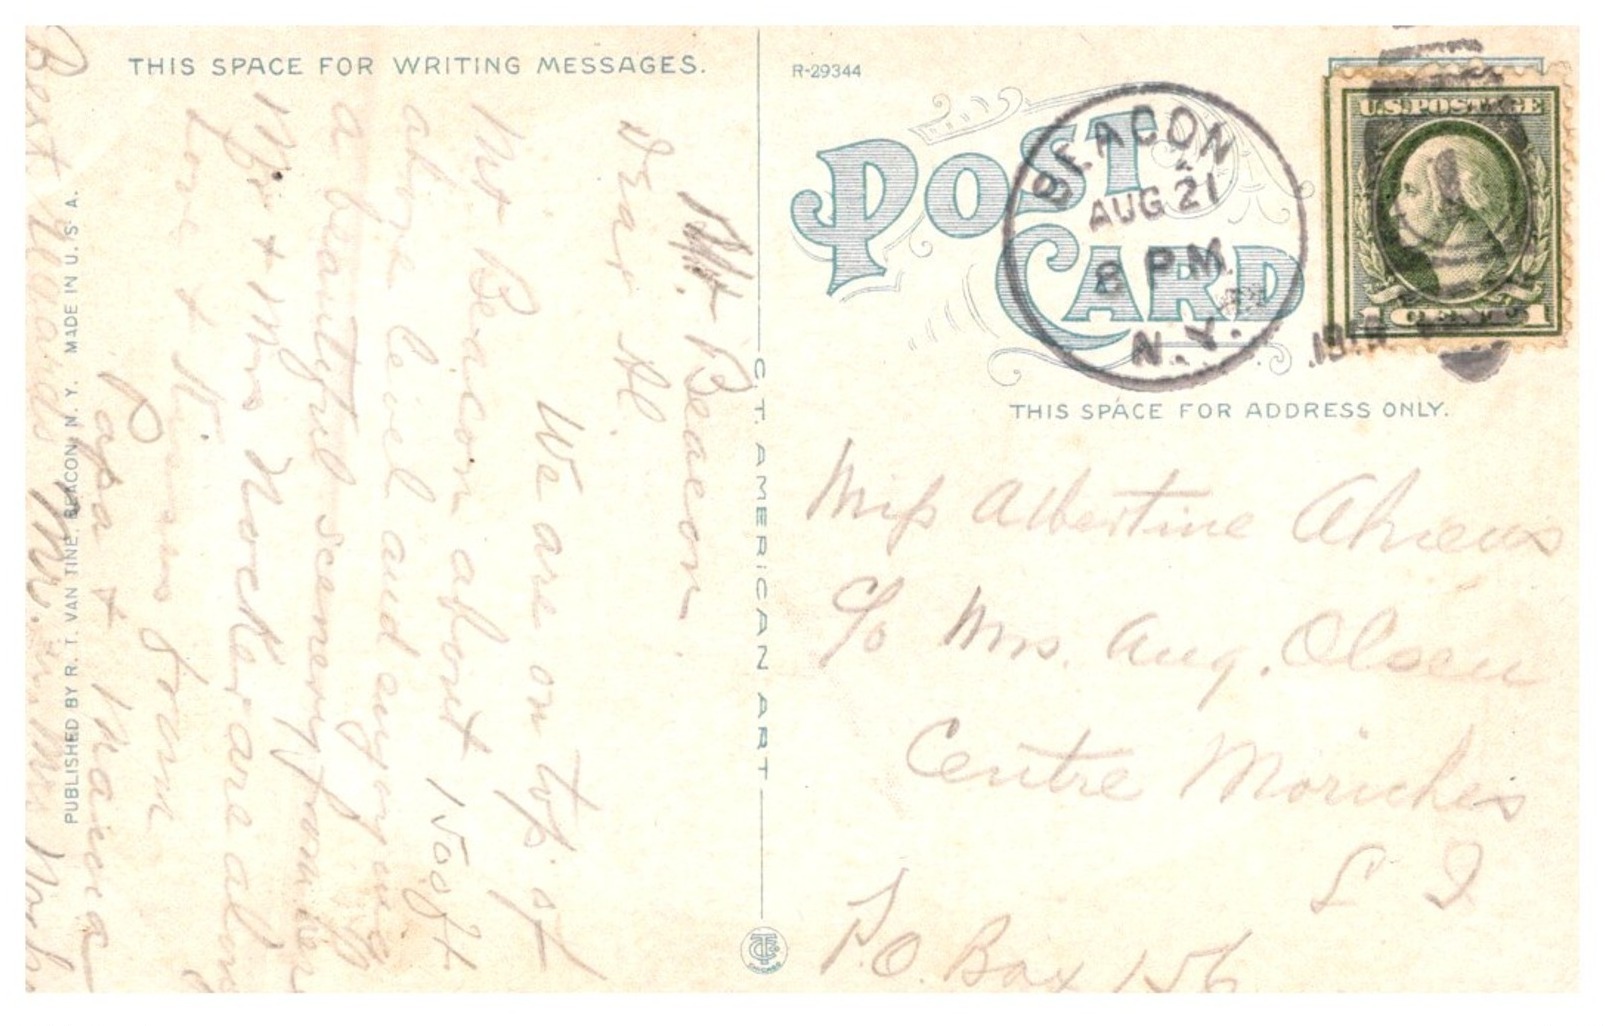 THIS SPACE FOR WRITING MESSAGES.
Mt. Beacon
Dear Al.
We are on top of
Mt Beacon about 1500 ft
above level and enjoying
a beautiful scenery from here
Mr + Mrs Nocker are along
Love + Kisses from
Papa + Mama
Best regards
PUBLISHED BY R. T. VAN TINE, BEACON, N. Y. MADE IN U. S. A.
C. T. AMERICAN ART
R-29344
POST CARD
BEACON
AUG 21
8 PM
N.Y.
U.S. POSTAGE
1 CENT 1
THIS SPACE FOR ADDRESS ONLY.
Miss Albertine Ahrens
c/o Mrs. Aug. Olsen
Centre Moriches
L I
P.O. Box 156
CHICAGO